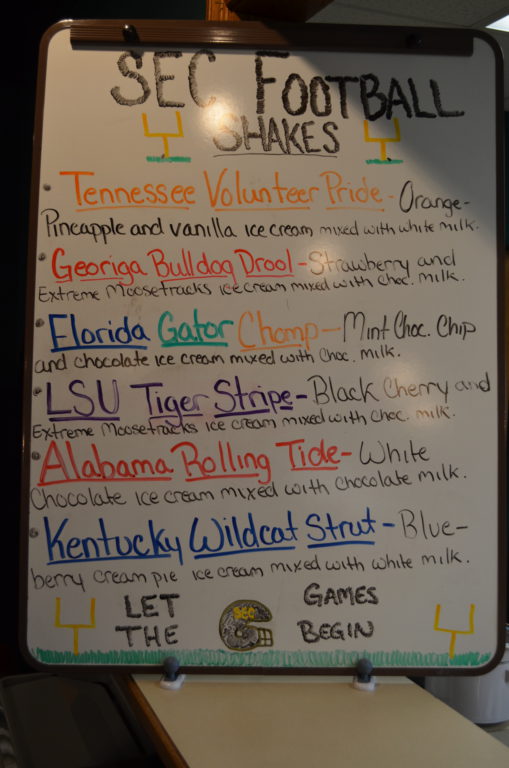 SEC FOOTBALL
SHAKES
Tennessee Volunteer Pride - Orange-
Pineapple and vanilla ice cream mixed with white milk.
Georiga Bulldog Drool - Strawberry and
Extreme Moosetracks ice cream mixed with choc. milk.
Florida Gator Chomp - Mint Choc. Chip
and chocolate ice cream mixed with choc. milk.
LSU Tiger Stripe - Black Cherry and
Extreme Moosetracks ice cream mixed with choc. milk.
Alabama Rolling Tide - White
Chocolate ice cream mixed with chocolate milk.
Kentucky Wildcat Strut - Blue-
berry cream pie ice cream mixed with white milk.
LET THE
SEC
GAMES BEGIN